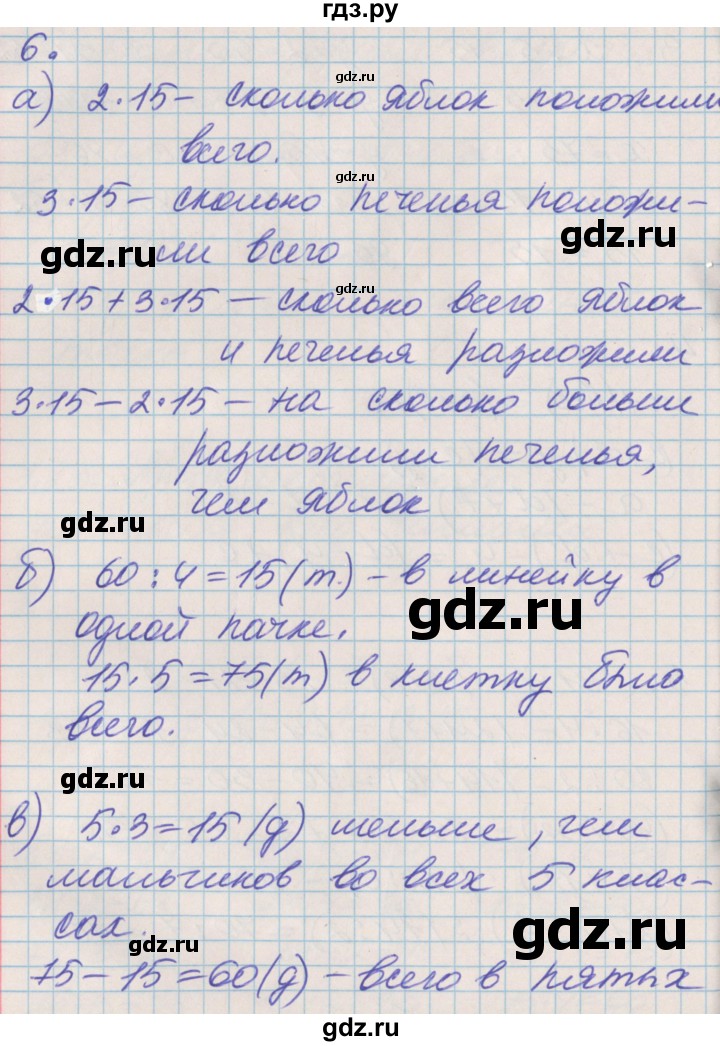 гдз.ру
6.
а) 2·15 – сколько яблок положили
всего.
3·15 – сколько печенья положи-
ли всего
2·15+3·15 – сколько всего яблок
и печенья разложили
3·15 – 2·15 – на сколько больше
разложили печенья,
чем яблок
б) 60:4=15(т.) – в линейку в
одной пачке.
15·5=75(т) в клетку было
всего.
в) 5·3=15(д) меньше, чем
мальчиков во всех 5 клас-
сах.
75–15=60(д) – всего в пятых
gdz.ru
gdz.ru
gdz.ru
gdz.ru
gdz.ru
gdz.ru
gdz.ru
gdz.ru
gdz.ru
gdz.ru
gdz.ru